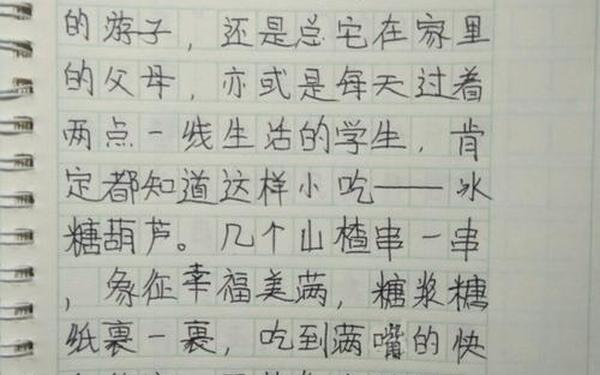 的游子，还是总宅在家里
的父母，亦或是每天过着
两点一线生活的学生，肯
定都知道这样小吃——冰
糖葫芦。几个山楂串一串
，象征幸福美满，糖浆糖
纸裹一裹，吃到满嘴的快